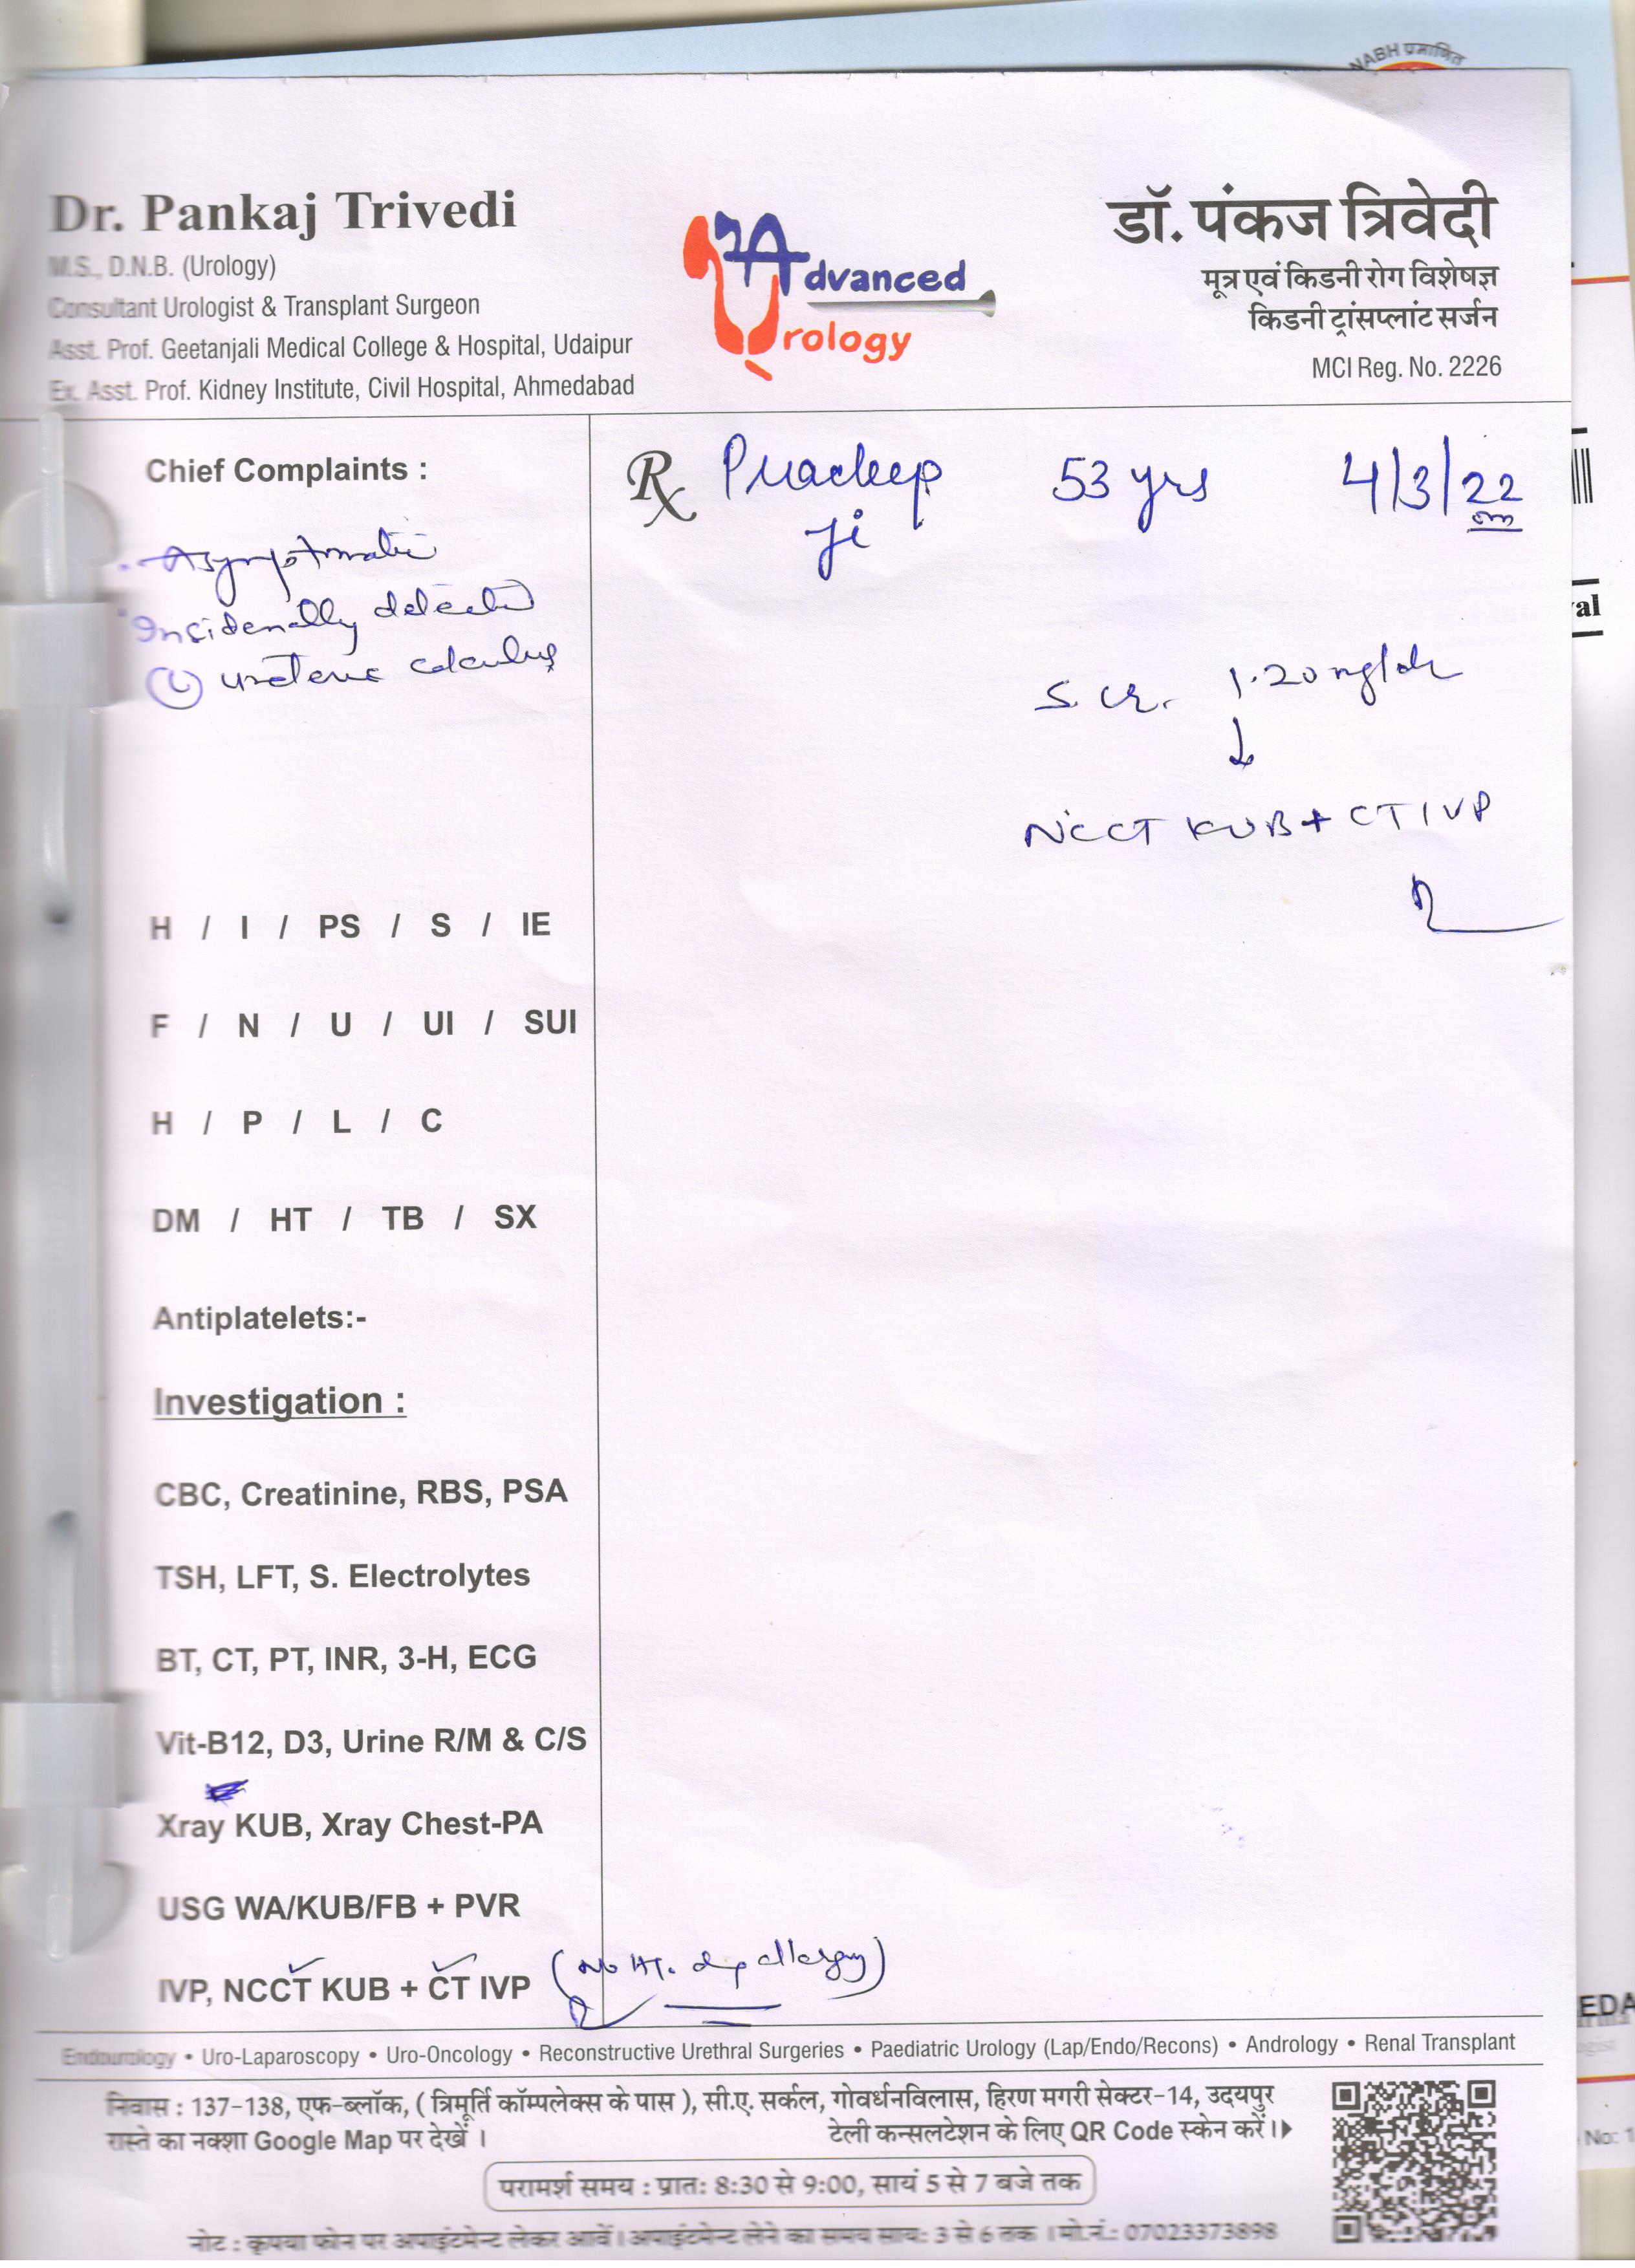 NABH प्रमाणित
Dr. Pankaj Trivedi
M.S., D.N.B. (Urology)
Consultant Urologist & Transplant Surgeon
Asst. Prof. Geetanjali Medical College & Hospital, Udaipur
Ex. Asst. Prof. Kidney Institute, Civil Hospital, Ahmedabad
Advanced
Urology
डॉ. पंकज त्रिवेदी
मूत्र एवं किडनी रोग विशेषज्ञ
किडनी ट्रांसप्लांट सर्जन
MCI Reg. No. 2226
Chief Complaints :
Asymptomatic
Incidenally detected
(L) ureteric calculus
Rx Pradeep 53 yrs 4/3/22
Ji
S. Cr. 1.20 mg/dl
↓
NCCT KUB + CT IVP
H / I / PS / S / IE
F / N / U / UI / SUI
H / P / L / C
DM / HT / TB / SX
Antiplatelets:-
Investigation :
CBC, Creatinine, RBS, PSA
TSH, LFT, S. Electrolytes
BT, CT, PT, INR, 3-H, ECG
Vit-B12, D3, Urine R/M & C/S
Xray KUB, Xray Chest-PA
USG WA/KUB/FB + PVR
IVP, NCCT KUB + CT IVP (No H/o allergy)
Endourology • Uro-Laparoscopy • Uro-Oncology • Reconstructive Urethral Surgeries • Paediatric Urology (Lap/Endo/Recons) • Andrology • Renal Transplant
निवास : 137-138, एफ-ब्लॉक, ( त्रिमूर्ति कॉम्पलेक्स के पास ), सी.ए. सर्कल, गोवर्धनविलास, हिरण मगरी सेक्टर-14, उदयपुर
रास्ते का नक्शा Google Map पर देखें ।
टेली कन्सलटेशन के लिए QR Code स्केन करें।
परामर्श समय : प्रातः 8:30 से 9:00, सायं 5 से 7 बजे तक
नोट : कृपया फोन पर अपाइंटमेन्ट लेकर आवें। अपाइंटमेन्ट लेने का समय सायः 3 से 6 तक । मो.नं.: 07023373898